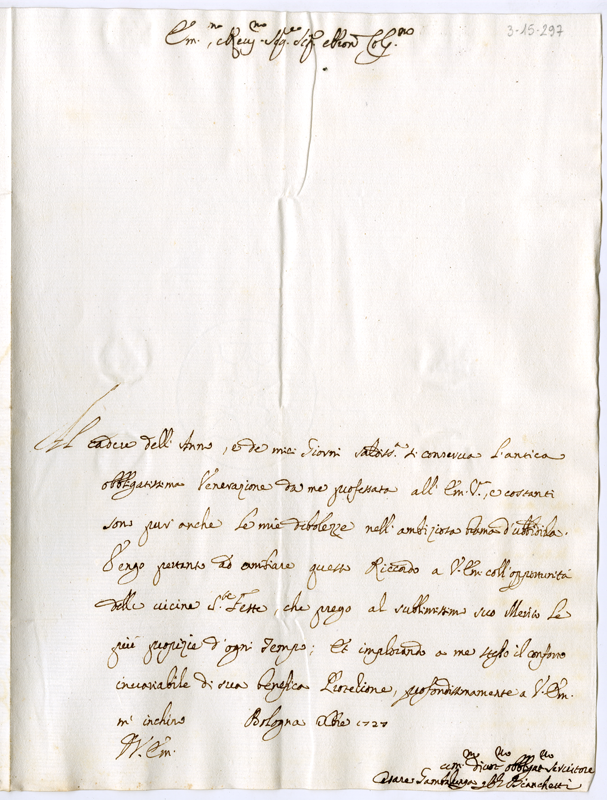 3-15-297
Em.mo, e Rev.mo Sig.re Sig.re e Pron Col.mo
Al cadere dell' Anno, e de miei Giorni si conserva l'antica
obbligatissima Venerazione da me professata all' Em. V., e costanti
sono pur' anche le mie debolezze nell' ambiziosa brama d'ubbidirla.
Vengo pertanto ad umiliare questo Ricordo a V. Em. coll' opportunità
delle vicine S.te Feste, che prego al sublimissimo suo Merito le
più propizie d'ogni tempo; Et implorando a me stesso il conforto
invariabile di sua benefica Protezione, profondissimamente a V. Em.
m' inchino Bologna Xbre 1727
Di V. Em.
um.mo divot.mo obbligat.mo Servitore
Cesare Bianchetti